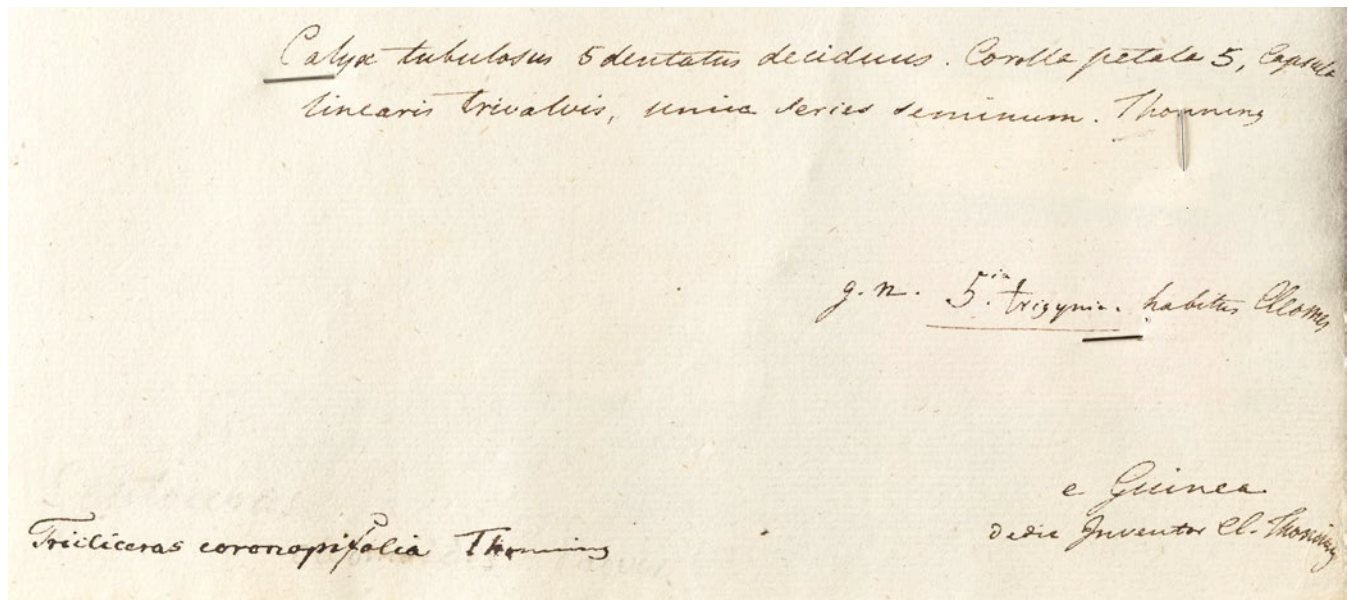 Calyx tubulosus 5dentatus deciduus. Corolla petala 5, Capsula
linearis trivalvis, unica series seminum. Thonning
g. n. 5.ia trigynia. habitus Cleomes
e Guinea
dedit Inventor Cl. Thonning
Triciliceras coronopifolia Thonning